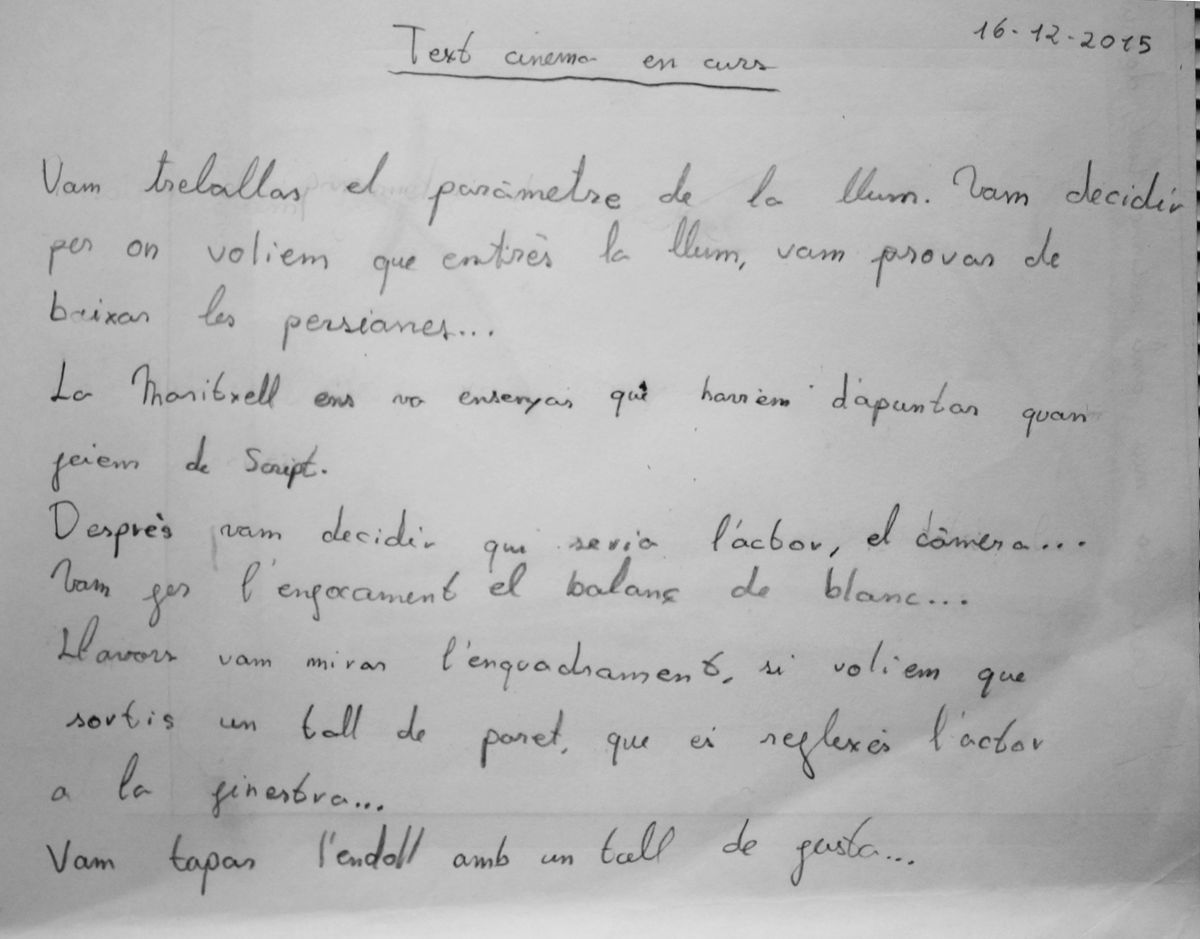 16-12-2015
Text cinema en curs
Vam treballar el paràmetre de la llum. Vam decidir
per on voliem que entrès la llum, vam provar de
baixar les persianes...
La Maritxell ens va ensenyar què haviem d'apuntar quan
feiem de Script.
Desprès vam decidir qui seria l'actor, el càmera...
Vam fer l'enfocament el balanç de blanc...
Llavors vam mirar l'enquadrament, si voliem que
sortis un tall de paret, que es reflexès l'actor
a la finestra...
Vam tapar l'endoll amb un tall de fusta...